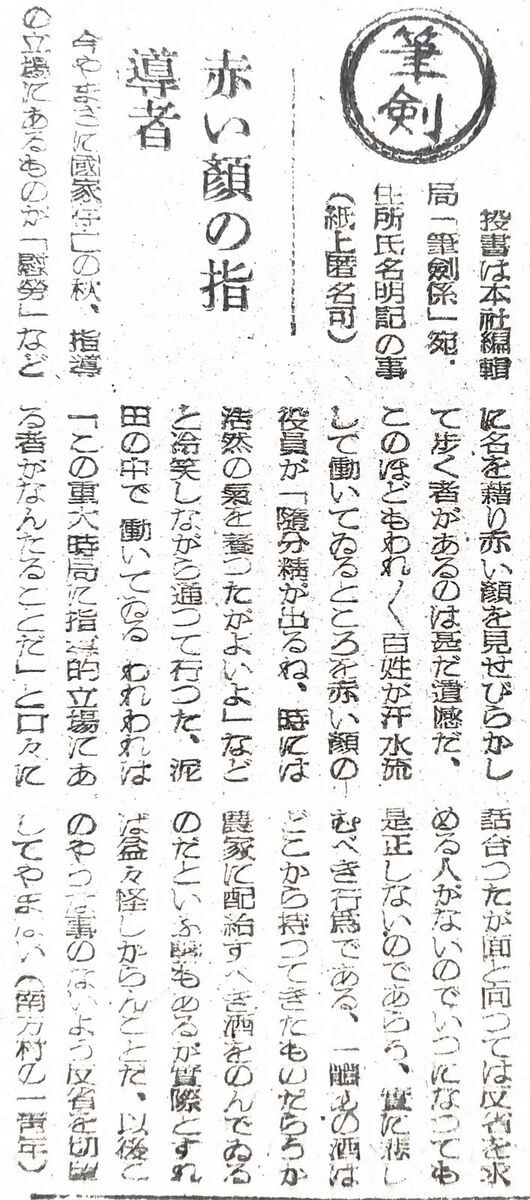 筆剣
投書は本社編輯
局「筆劍係」宛、
住所氏名明記の事
(紙上匿名可)
赤い顔の指
導者
今やまさに國家
の秋、指導
の立場にあるものが「慰勞」など
に名を藉り赤い顔を見せびらかし
て歩く者があるのは甚だ遺憾だ、
このほどもわれ〳〵百姓が汗水流
して働いてゐるところを赤い顔の
役員が「隨分精が出るね、時には
浩然の氣を養つたがよいよ」など
と冷笑しながら通つて行つた、泥
田の中で働いてゐるわれわれは
「この重大時局に指導的立場にあ
る者がなんたることだ」と口々に
話合つたが面と向つては反省を求
める人がないのでいつになつても
是正しないのであらう、實に悲し
むべき行爲である、一體あの酒は
どこから持つてきたものだらうか
農家に配給すべき酒をのんでゐる
のだといふ噂もあるが實際とすれ
ば益々怪しからんことだ、以後こ
のやうな事のないよう反省を切望
してやまない(南方村の一青年)